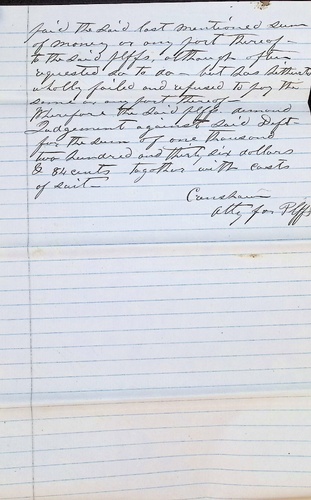 paid the said last mentioned sum
of money or any part thereof -
to the said plffs, although often
requested so to do - but has hitherto
wholly failed and refused to pay the
same or any part thereof -
Wherefore the said plffs demand
Judgement against said Deft
for the sum of one thousand
two hundred and thirty six dollars
& 84 cents together with costs
of suit -
Atty for Plffs